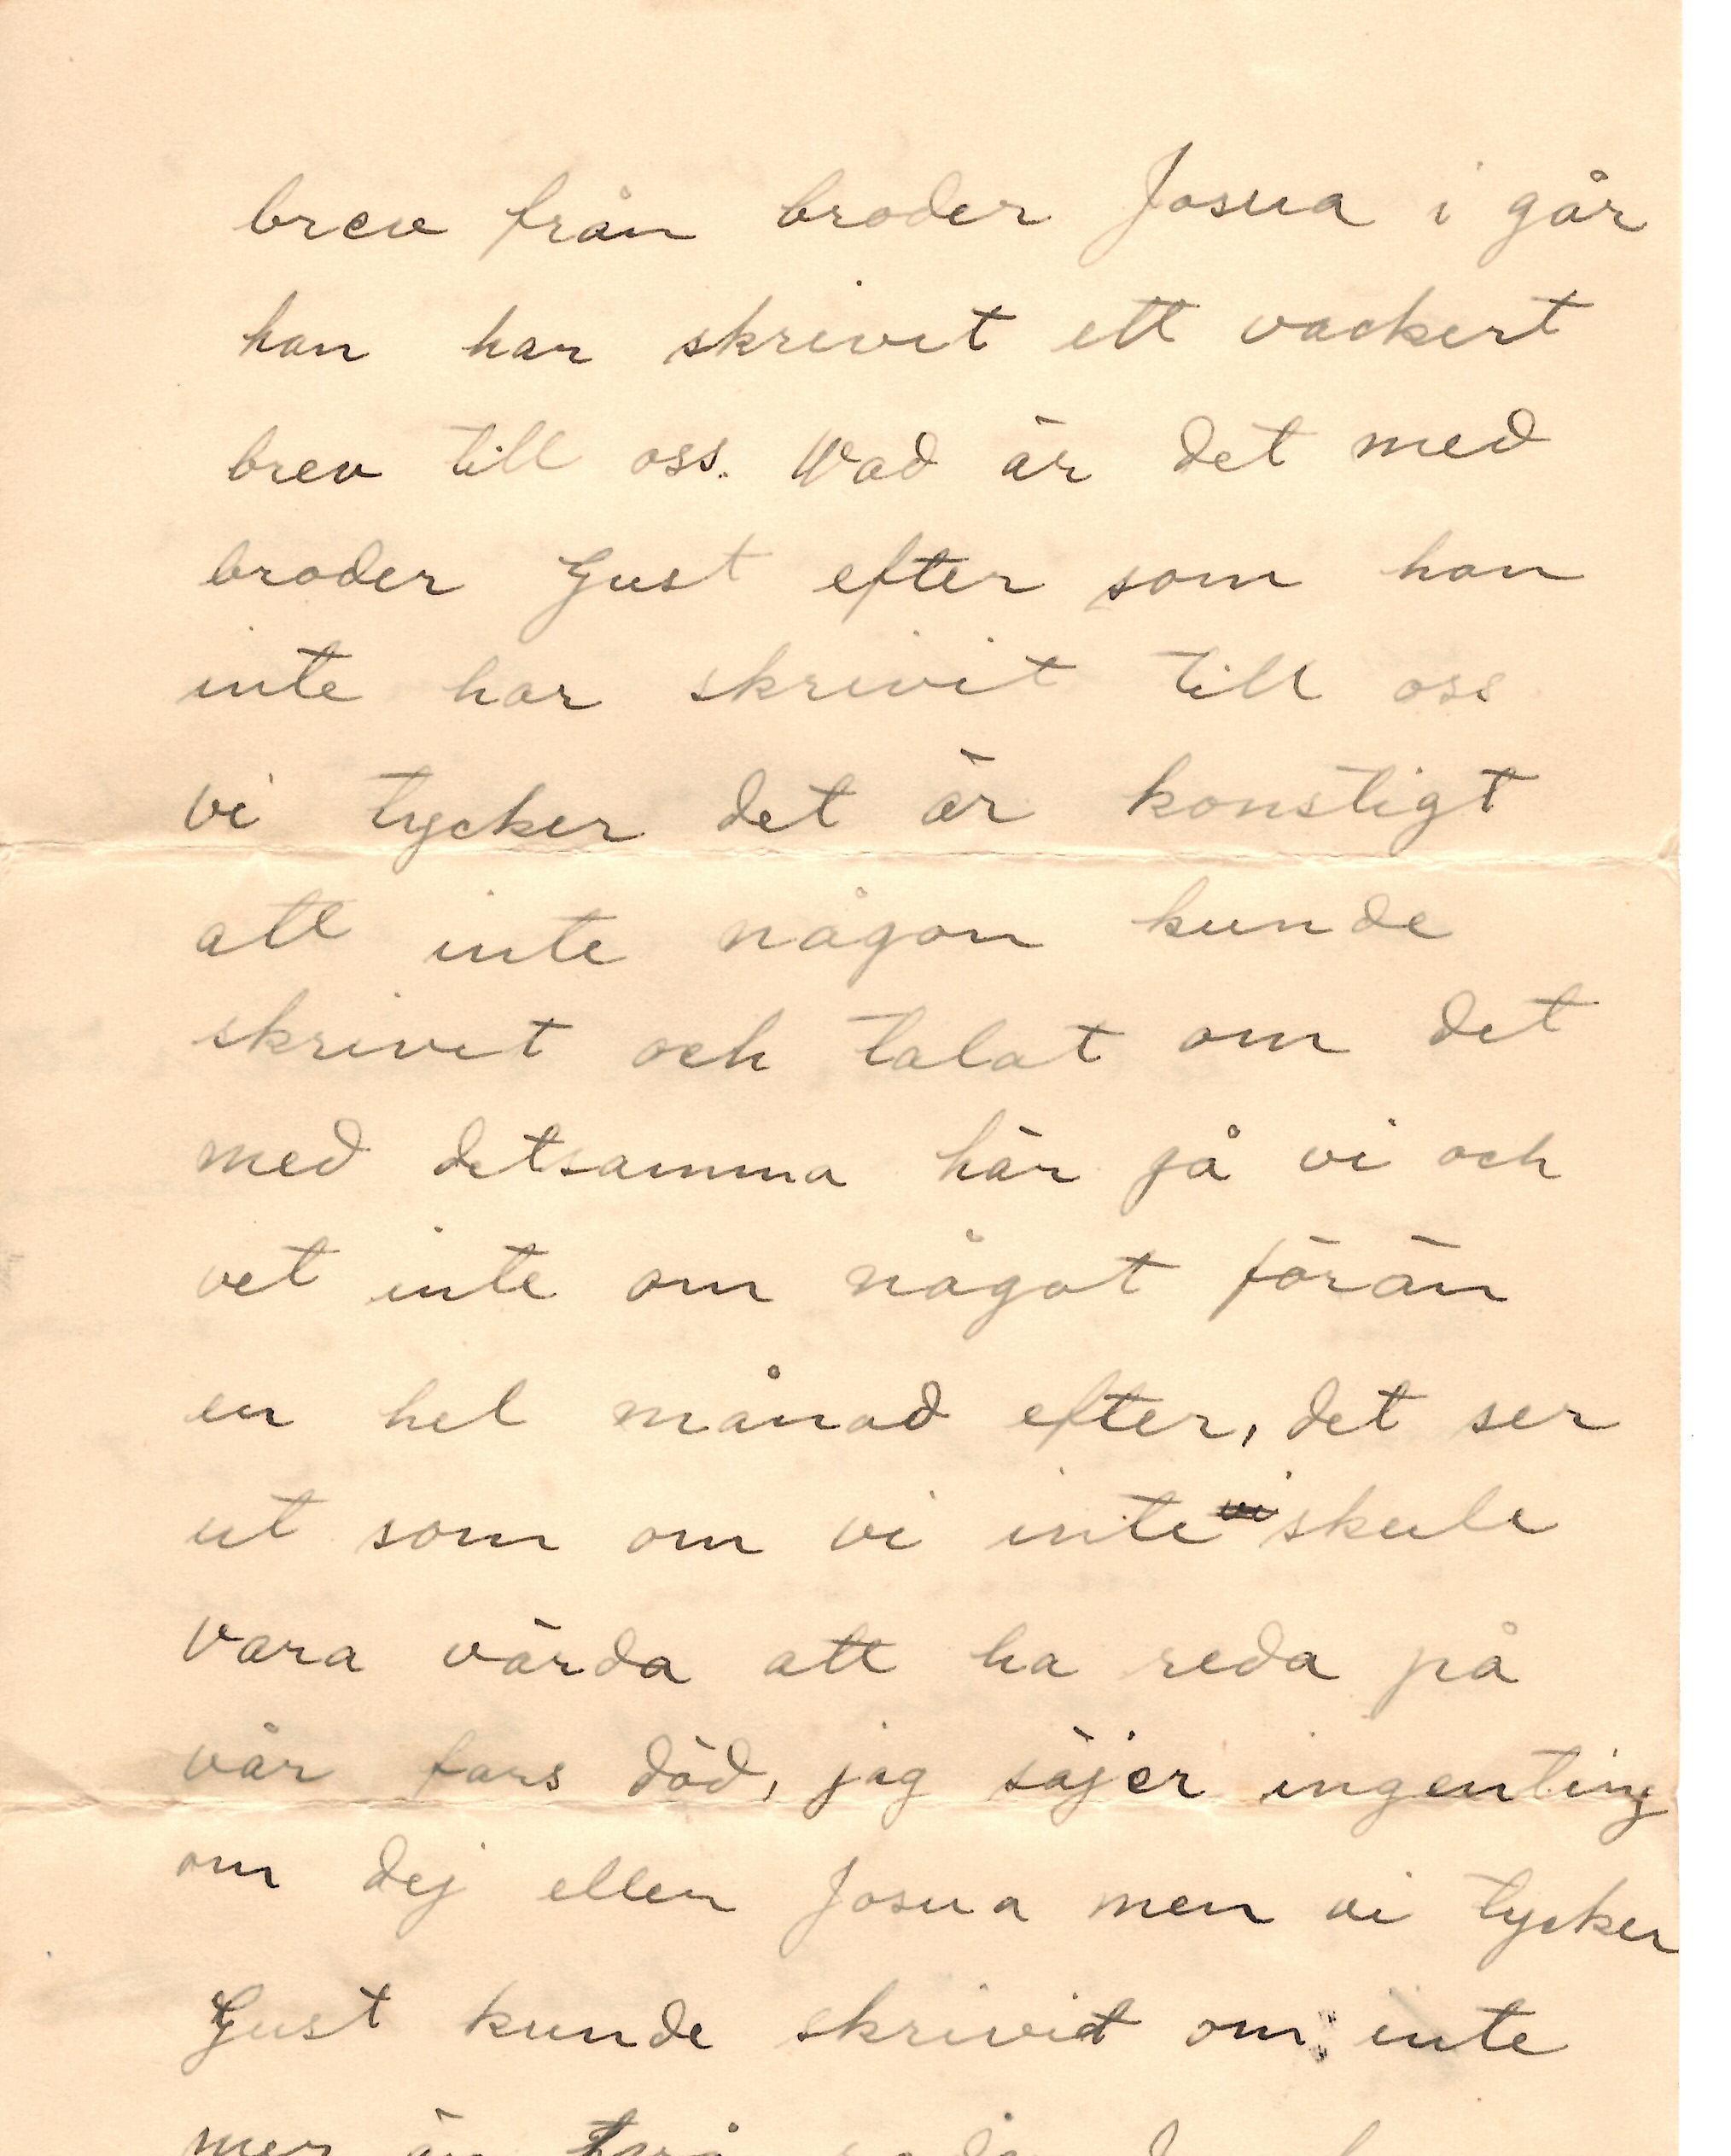 brev från broder Josua i går
han har skrivit ett vackert
brev till oss. Wad är det med
broder Gust efter som han
inte har skrivit till oss
vi tycker det är konstigt
att inte någon kunde
skrivit och talat om det
med detsamma här gå vi och
vet inte om något förän
en hel månad efter, det ser
ut som om vi inte vi skule
vara värda att ha reda på
vår fars död, jag säjer ingenting
om dej eller Josua men vi tycker
Gust kunde skrivit om inte
mer än två